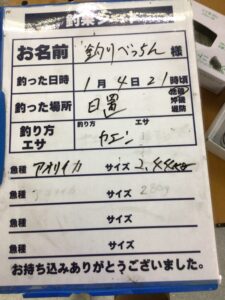 お名前 釣りべっちん 様
釣った日時 1月4日21時頃
釣った場所 日置 地磯 沖磯 堤防
釣り方 エサ 釣り方 エサ
カエン
魚種 アオリイカ サイズ 2,44kg
魚種 サイズ 280g
魚種 サイズ
魚種 サイズ
お持ち込みありがとうございました。